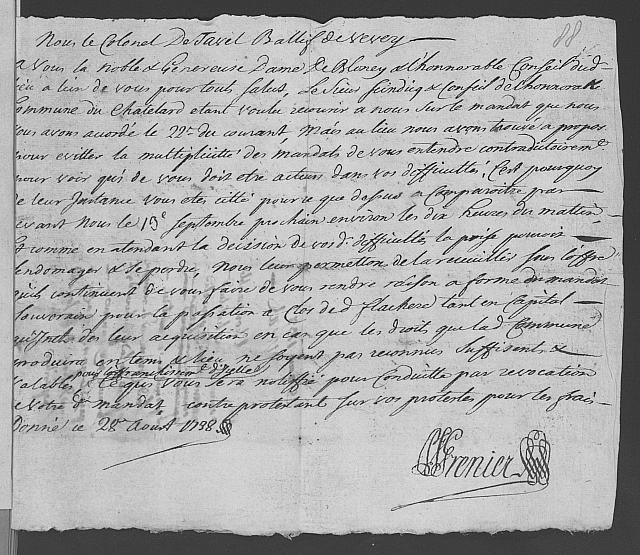 88
Nous le Colonel De Tavel Ballif de Vevey
A Vous la Noble & Genereuse Dame De Blonay & l'honnorable Conseil dud
lieu a l'un de vous pour tous salut, Le Sieur scindiq & Conseil de L'honnorable
Commune du Chatelard etant voulu recourir a nous sur le mandat que nous
vous avons acordé le 22e. du courant, mais au lieu nous avons trouvé a propos
pour evitter la multipliïtté des mandats de vous entendre contradictoiremt
pour voir qui de vous doit etre acteur dans vos difficultés, C'est pourquoy
de leur Instance vous etes citté pour ce que dessus a Comparoitre par
devant Nous le 15e. Septembre prochain environ les dix heures du mattin,
Et comme en atendant la decission de vos d. difficultés la poise pouroit
s'endomager & se perdre, Nous leur permetton de la recueillir sous l'offre
qu'ils continuent de vous faire de vous rendre raison a forme du mandat
Souverain pour la Clos de d flachere tant en Capital
des leur acquisition en cas que les droits que lad Commune
produira en tems & lieu ne soyent pas reconnus suffisents &
pour l'affranchissement d'Icelle
valables, Ce qui vous sera notiffié pour Conduitte par revocation
de Votre d. mandat, contreprotestant sur vos protestes pour les frais
Donné ce 29e. Aoust 1738
Grenier